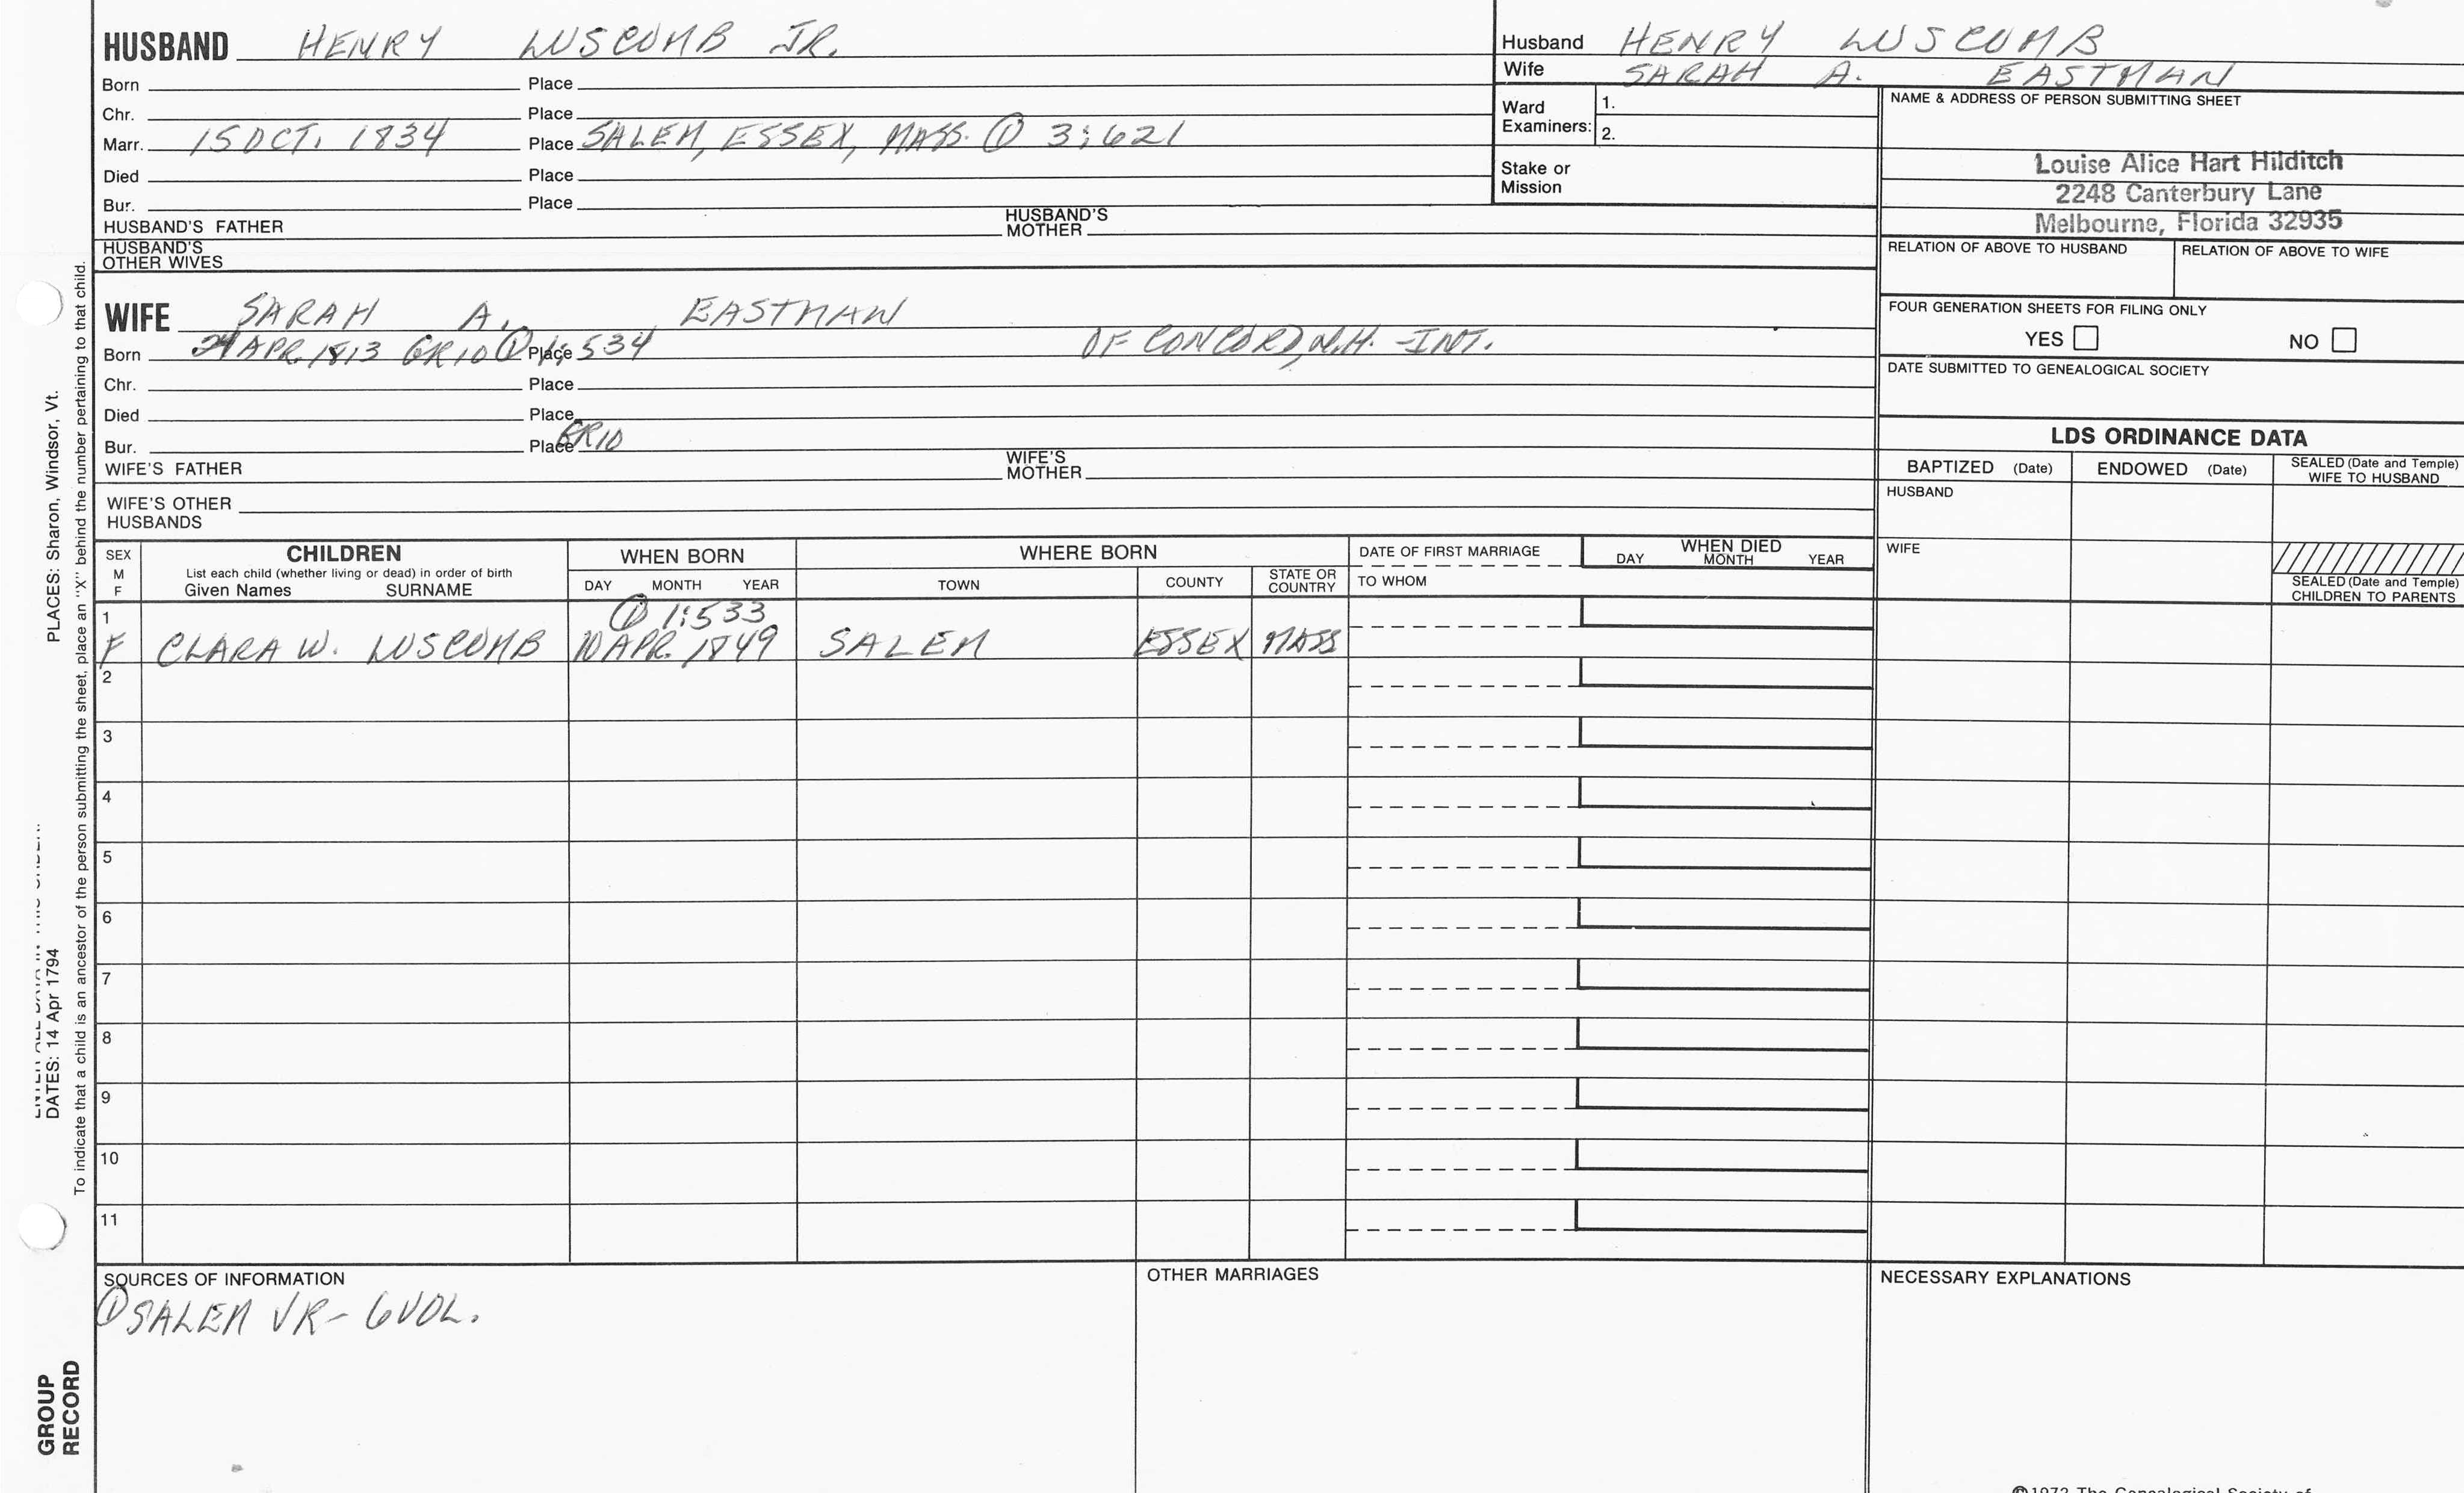 HUSBAND HENRY LUSCOMB JR.
Born Place
Chr. Place
Marr. 15 OCT. 1834 Place SALEM, ESSEX, MASS. ① 3:621
Died Place
Bur. Place
HUSBAND'S FATHER HUSBAND'S MOTHER
HUSBAND'S OTHER WIVES
Husband HENRY LUSCOMB
Wife SARAH A. EASTMAN
Ward Examiners: 1.
2.
Stake or Mission
NAME & ADDRESS OF PERSON SUBMITTING SHEET
Louise Alice Hart Hilditch
2248 Canterbury Lane
Melbourne, Florida 32935
RELATION OF ABOVE TO HUSBAND RELATION OF ABOVE TO WIFE
FOUR GENERATION SHEETS FOR FILING ONLY
YES NO
DATE SUBMITTED TO GENEALOGICAL SOCIETY
WIFE SARAH A. EASTMAN
Born 24 APR. 1813 GR10 ① 1:534 Place OF CONCORD, N.H. -INT.
Chr. Place
Died Place
Bur. Place GR10
WIFE'S FATHER WIFE'S MOTHER
WIFE'S OTHER HUSBANDS
LDS ORDINANCE DATA
BAPTIZED (Date) ENDOWED (Date) SEALED (Date and Temple) WIFE TO HUSBAND
HUSBAND
WIFE
SEALED (Date and Temple) CHILDREN TO PARENTS
SEX M F
CHILDREN
List each child (whether living or dead) in order of birth
Given Names SURNAME
WHEN BORN
DAY MONTH YEAR
WHERE BORN
TOWN COUNTY STATE OR COUNTRY
DATE OF FIRST MARRIAGE
TO WHOM
WHEN DIED
DAY MONTH YEAR
1 ① 1:533
F CLARA W. LUSCOMB 10 APR. 1849 SALEM ESSEX MASS
2
3
4
5
6
7
8
9
10
11
SOURCES OF INFORMATION
① SALEM VR- 6 VOL.
OTHER MARRIAGES
NECESSARY EXPLANATIONS
PLACES: Sharon, Windsor, Vt.
DATES: 14 Apr 1794
To indicate that a child is an ancestor of the person submitting the sheet, place an "X" behind the number pertaining to that child.
GROUP
RECORD
©1972 The Genealogical Society of